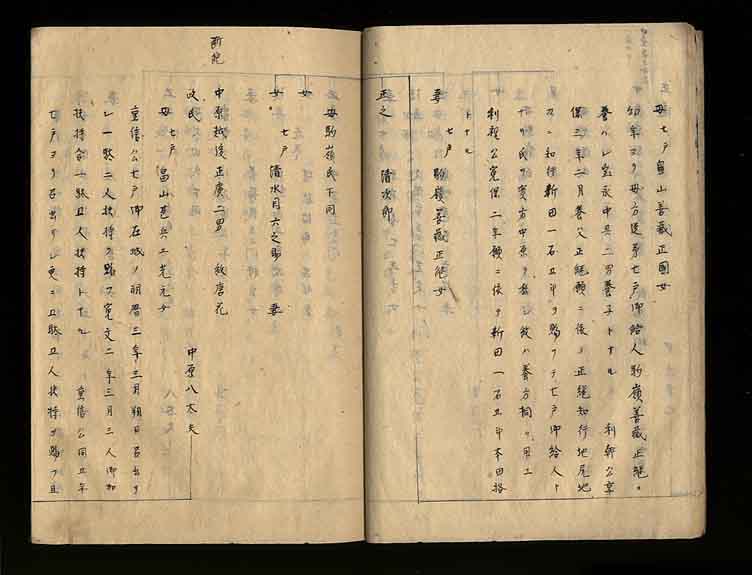 母 七戸 畠山善蔵正國女
幼年ヨリ母方之系七戸御給人駒嶺善蔵正継ニ
養ハレ宝永中兵二男養子トナル 利幹公享
保三年二月養父正継願ニ依リ正継知行地尾地
ニ 和行新田一石五斗ヲ賜フテ七戸御給人ト
ナリ氏ヲ実方中原ヲ 後ハ養方桐ヲ用ユ
利視公寛保二年願ニ依リ新田一石五斗本田
トナル
妻 七戸 駒嶺善蔵正継女
正之 清次郎
母駒嶺氏下同
女
女 七戸 清水目六之助 妻
中原越後正康二男 故唐花
政氏 中原八太夫
母 七戸 畠山甚兵エ光元女
重信公七戸御在城ノ明暦三年三月朔日召出サ
レ一駄二人扶持ヲ賜フ寛文二年三月三人御加
扶持合一駄五人扶持トナル 重信公同五年
七戸ヨリ召出サレ更ニ五駄五人扶持ヲ賜フ且